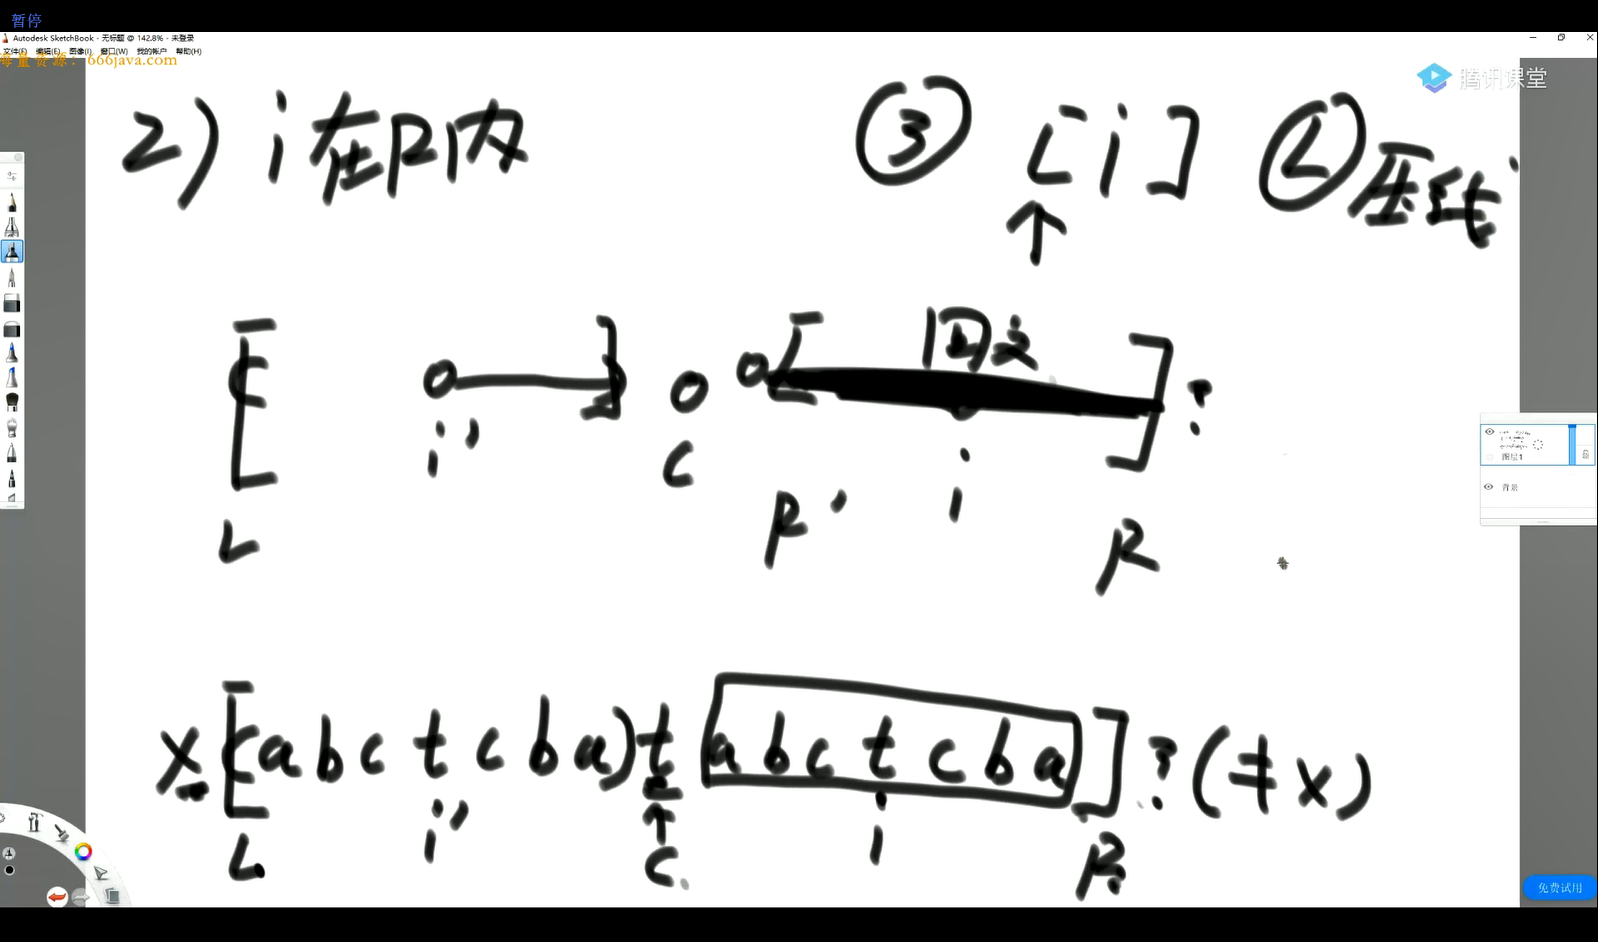 暂停
Autodesk SketchBook - 无标题 @ 142.8% - 未登录
文件(F) 编辑(E) 图像(I) 窗口(W) 我的帐户 帮助(H)
海量资源：666java.com
腾讯课堂
2) i在R内 ③ [i] ② 压线
↑
[( o ) ] o o [ 回文 ] ?
i' C i
L R' R
x [(abctcba) t (abctcba)] ? (≠x)
i' ↑ i
L C R
图层1
背景
免费试用